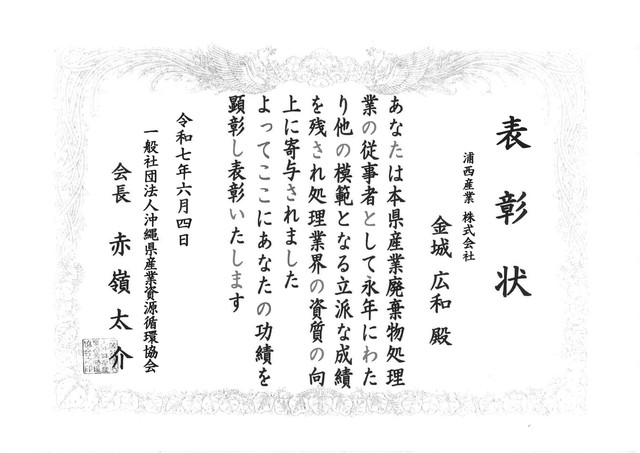 表彰状
浦西産業 株式会社
金城 広和 殿
あなたは本県産業廃棄物処理
業の従事者として永年にわた
り他の模範となる立派な成績
を残され処理業界の資質の向
上に寄与されました
よってここにあなたの功績を
顕彰し表彰いたします
令和七年六月四日
一般社団法人沖縄県産業資源循環協会
会長 赤嶺太介